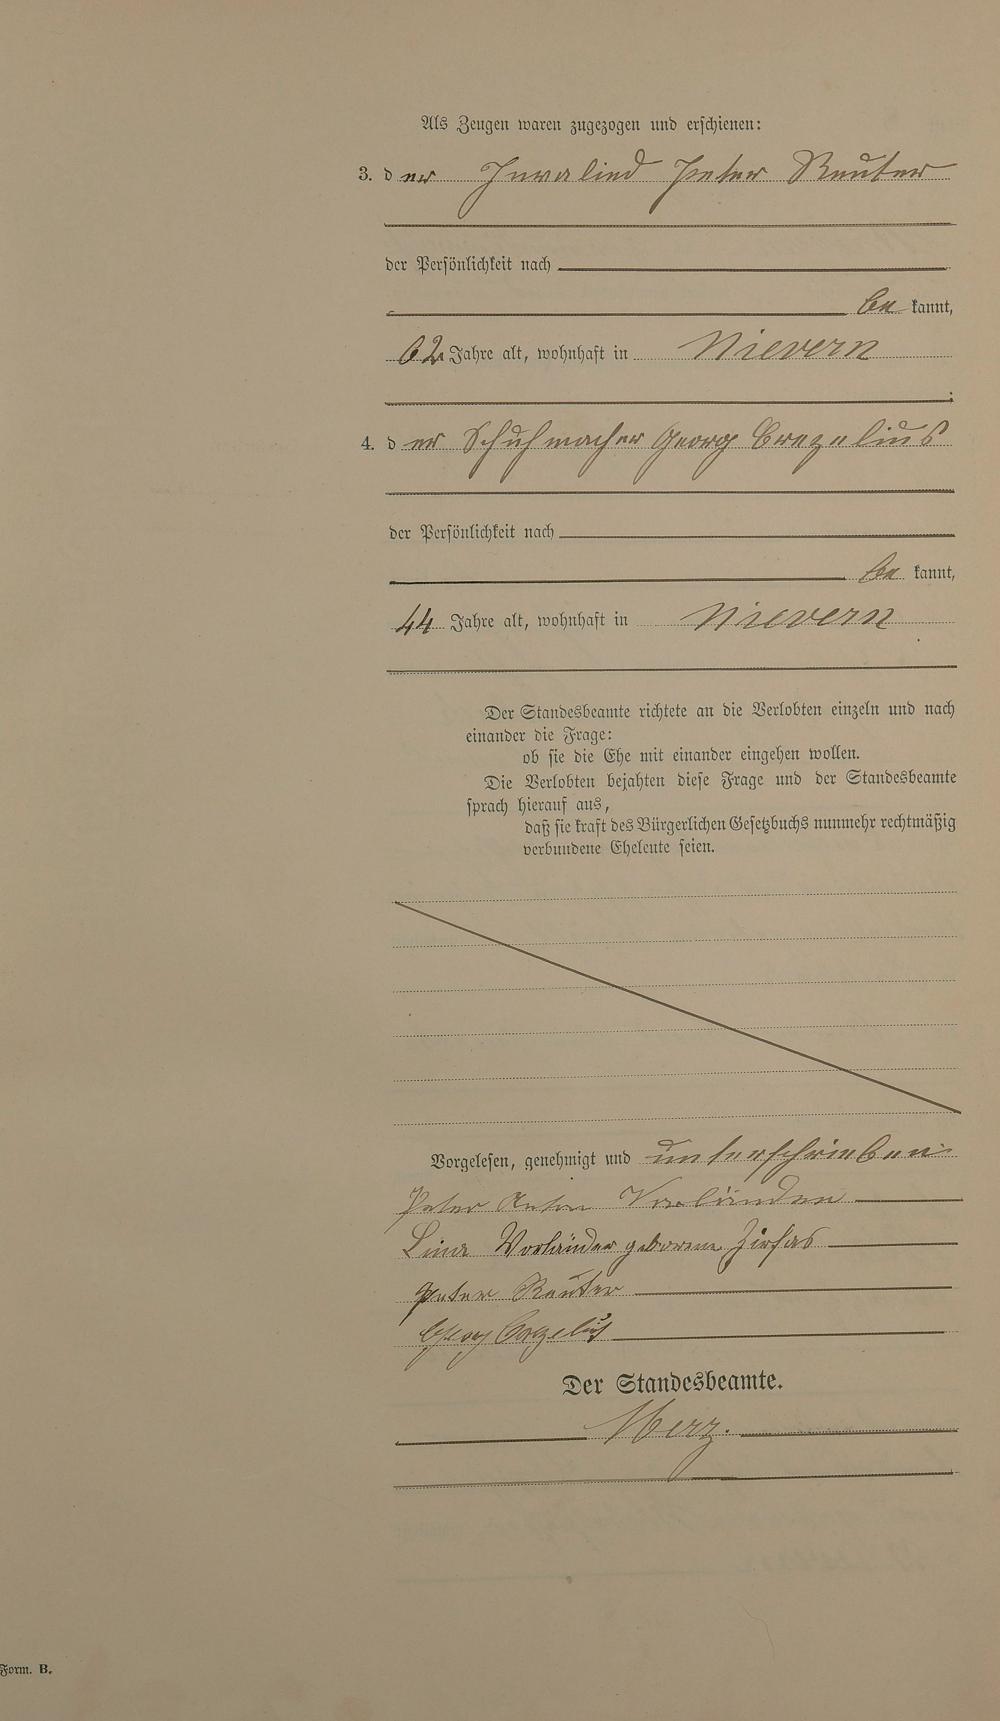 Als Zeugen waren zugezogen und erschienen:
3. der Invalied Peter Reuter
der Persönlichkeit nach
be kannt,
62 Jahre alt, wohnhaft in Nievern
;
4. der Schuhmacher Georg Crezelius
der Persönlichkeit nach
be kannt,
44 Jahre alt, wohnhaft in Nievern
Der Standesbeamte richtete an die Verlobten einzeln und nach
einander die Frage:
ob sie die Ehe mit einander eingehen wollen.
Die Verlobten bejahten diese Frage und der Standesbeamte
sprach hierauf aus,
daß sie kraft des Bürgerlichen Gesetzbuchs nunmehr rechtmäßig
verbundene Eheleute seien.
Vorgelesen, genehmigt und unterschrieben
Peter Anton Vorländer
Lina Vorländer geborene Zirfas
Peter Reuter
Georg Crezelius
Der Standesbeamte.
Merz.
Form. B.